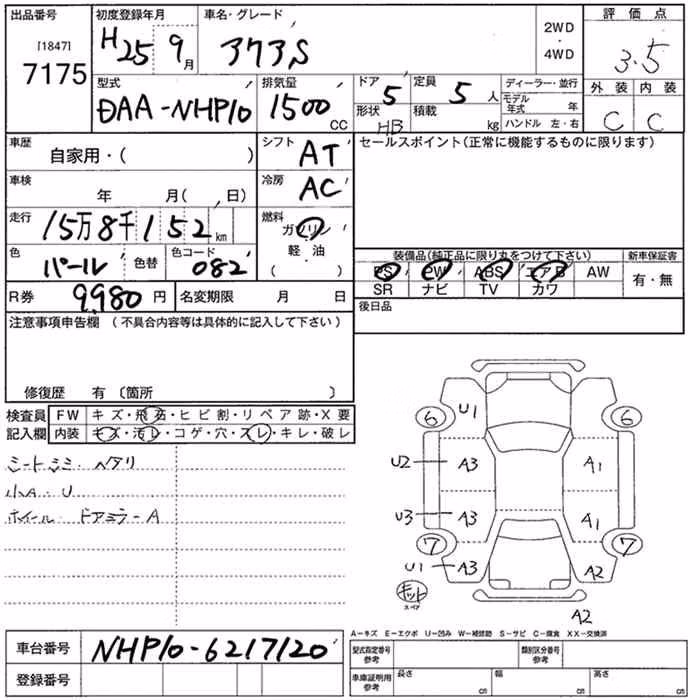 出品番号
[1847]
7175
初度登録年月
H25 9月
車名・グレード
アクアS
2WD
・
4WD
評価点
3.5
型式
DAA-NHP10
排気量
1500
CC
ドア
5
形状
HB
定員
5 人
積載
kg
ディーラー・並行
モデル年式 年
ハンドル 左・右
外装 内装
C C
車歴
自家用・( )
シフト
AT
セールスポイント(正常に機能するものに限ります)
車検
年 月( , 日)
冷房
AC
走行
15万8千152km
燃料
ガソリン
・
軽・油
( )
色
パール
色替
色コード
082
装備品(純正品に限り丸をつけて下さい)
新車保証書
PS PW ABS エアB AW
SR ナビ TV カワ
有・無
R券
9,980円
名変期限 月 日
後日品
注意事項申告欄 (不具合内容等は具体的に記入して下さい)
修復歴 有 〔箇所 〕
検査員
記入欄
FW キズ・飛石・ヒビ割・リペア跡・X要
内装 キズ・汚レ・コゲ・穴・スレ・キレ・破レ
シートシミ・ヘタリ
小A・U
ホイール・ドアミラーA
6 U1 6
U2 A3 A1
U3 A3 A1
7 7
U1 A3 A2
キット
スペア
A2
A-キズ E-エクボ U-凹み W-補修跡 S-サビ C-腐食 XX-交換済
車台番号
NHP10-6217120
登録番号
型式指定番号
参考
類別区分番号
参考
車庫証明用
参考
長さ cm
幅 cm
高さ cm